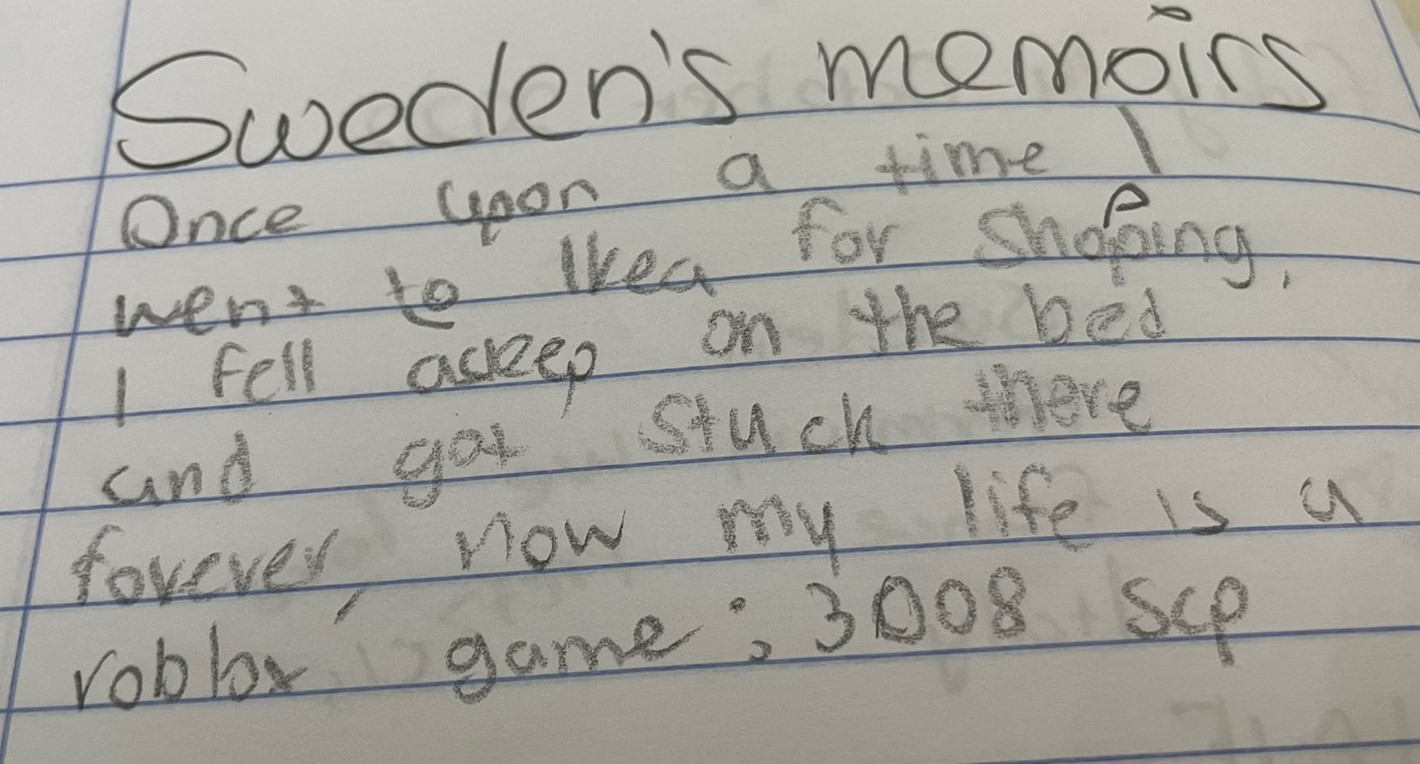 Sweden's memoirs
Once upon a time I
went to Ikea for shopping,
I fell asleep on the bed
and got stuck there
forever, now my life is a
roblox game: 3008 scp